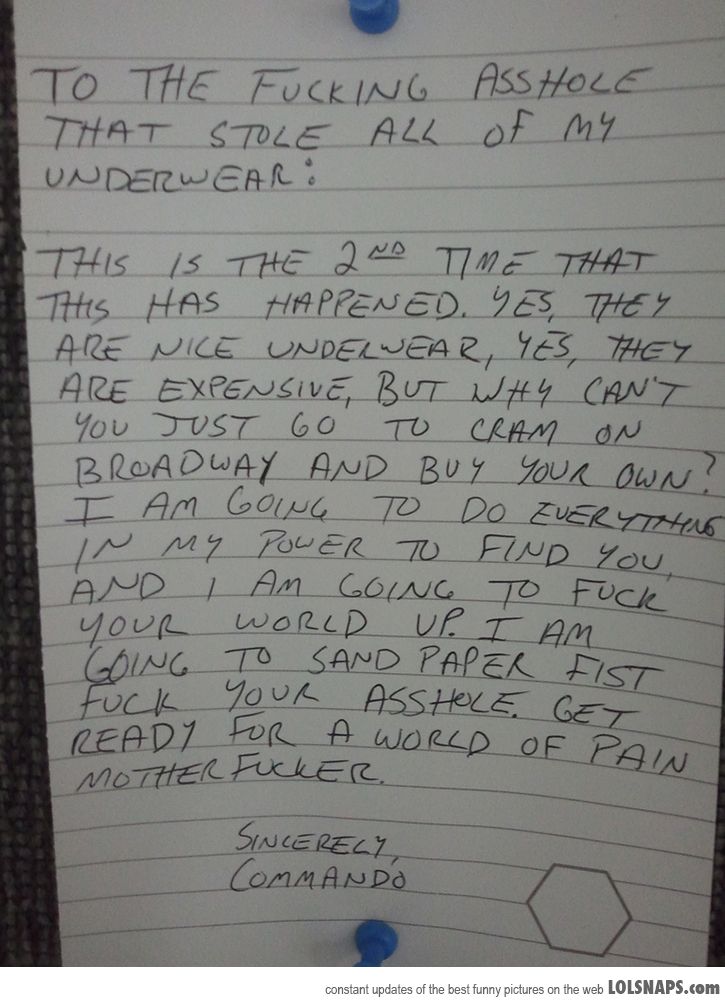 TO THE FUCKING ASSHOLE
THAT STOLE ALL OF MY
UNDERWEAR:
THIS IS THE 2ND TIME THAT
THIS HAS HAPPENED. YES, THEY
ARE NICE UNDERWEAR, YES, THEY
ARE EXPENSIVE, BUT WHY CAN'T
YOU JUST GO TO CRAM ON
BROADWAY AND BUY YOUR OWN?
I AM GOING TO DO EVERYTHING
IN MY POWER TO FIND YOU,
AND I AM GOING TO FUCK
YOUR WORLD UP. I AM
GOING TO SAND PAPER FIST
FUCK YOUR ASSHOLE. GET
READY FOR A WORLD OF PAIN
MOTHER FUCKER.
SINCERELY,
COMMANDO
constant updates of the best funny pictures on the web LOLSNAPS.com